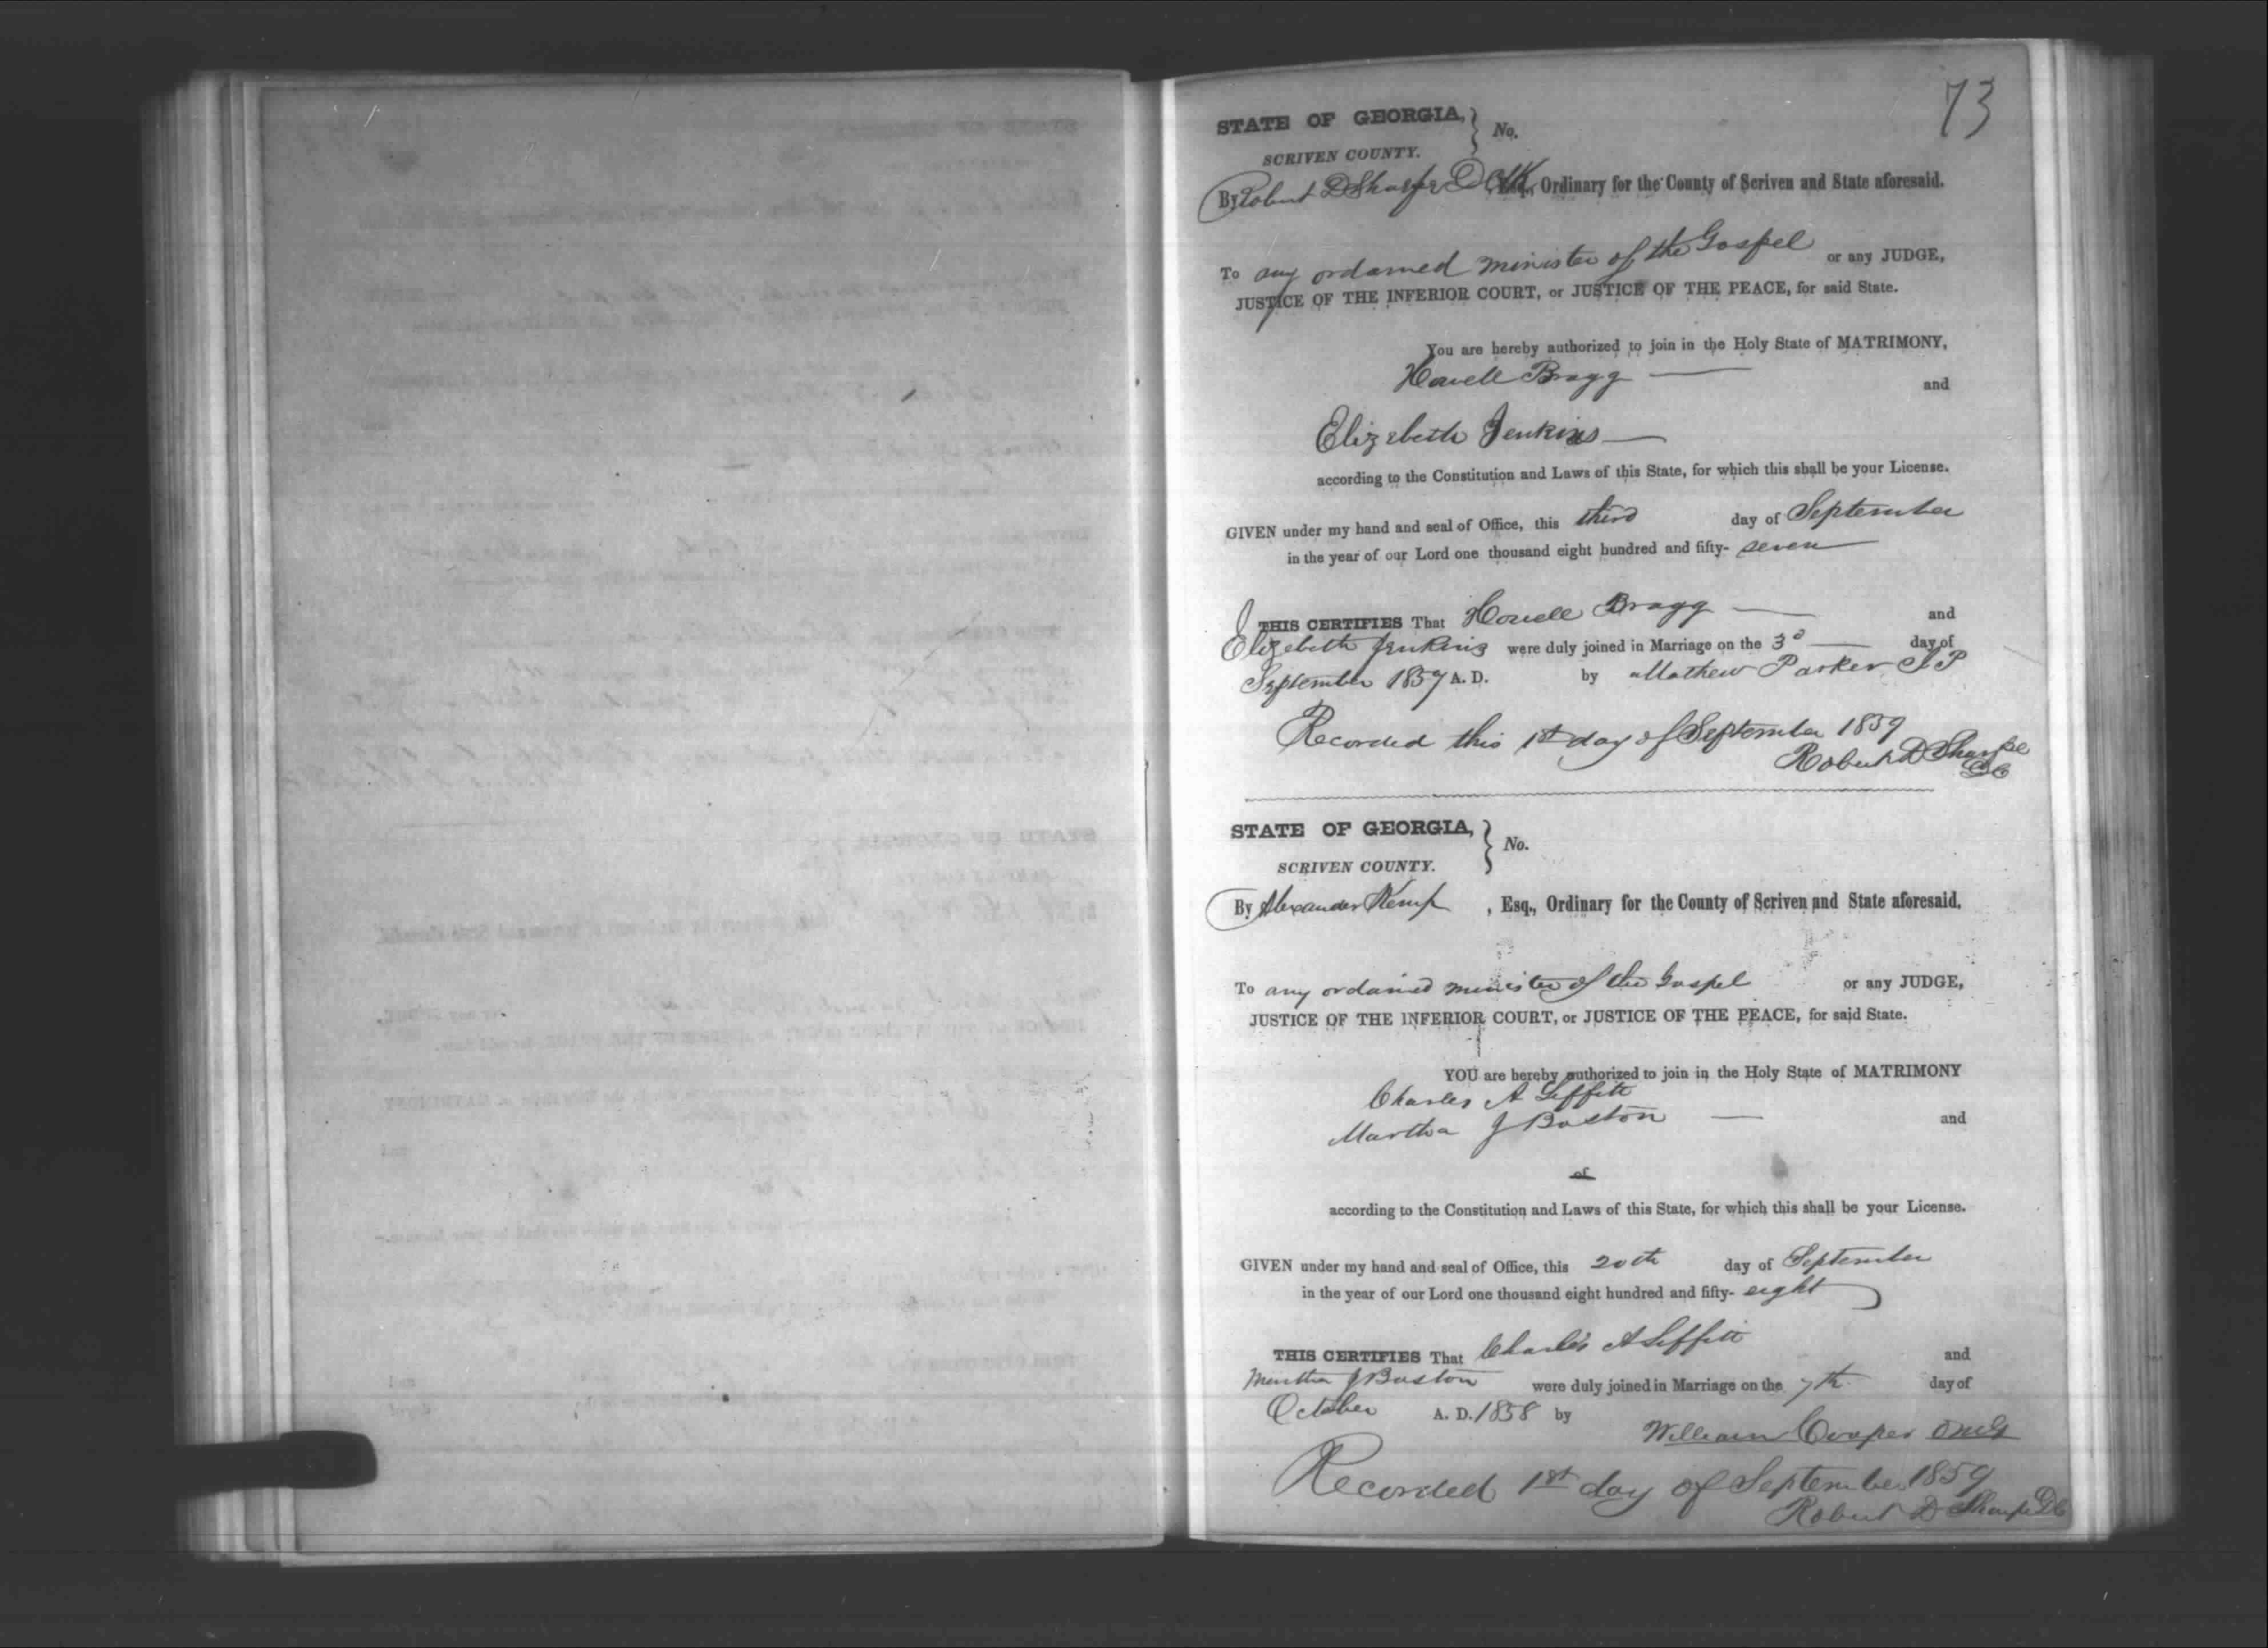 73
STATE OF GEORGIA, } No.
SCRIVEN COUNTY.
By Robert D Sharpe D Clk Esq., Ordinary for the County of Scriven and State aforesaid.
To any ordained minister of the Gospel or any JUDGE,
JUSTICE OF THE INFERIOR COURT, or JUSTICE OF THE PEACE, for said State.
You are hereby authorized to join in the Holy State of MATRIMONY,
Howell Bragg — and
Elizebeth Jenkins —
according to the Constitution and Laws of this State, for which this shall be your License.
GIVEN under my hand and seal of Office, this third day of September
in the year of our Lord one thousand eight hundred and fifty- seven
THIS CERTIFIES That Howell Bragg — and
Elizebeth Jenkins were duly joined in Marriage on the 3d — day of
September 1857 A. D. by Mathew Parker J P
Recorded this 1st day of September 1859
Robert D Sharpe
DC
STATE OF GEORGIA, } No.
SCRIVEN COUNTY.
By Alexander Kemp , Esq., Ordinary for the County of Scriven and State aforesaid.
To any ordained minister of the Gospel or any JUDGE,
JUSTICE OF THE INFERIOR COURT, or JUSTICE OF THE PEACE, for said State.
YOU are hereby authorized to join in the Holy State of MATRIMONY
Charles A
Martha J Baston — and
of
according to the Constitution and Laws of this State, for which this shall be your License.
GIVEN under my hand and seal of Office, this 20th day of September
in the year of our Lord one thousand eight hundred and fifty- eight
THIS CERTIFIES That Charles A and
Martha J Baston were duly joined in Marriage on the 7th day of
October A. D. 1858 by
William Cooper OMG
Recorded 1st day of September 1859
Robert D Sharpe DC